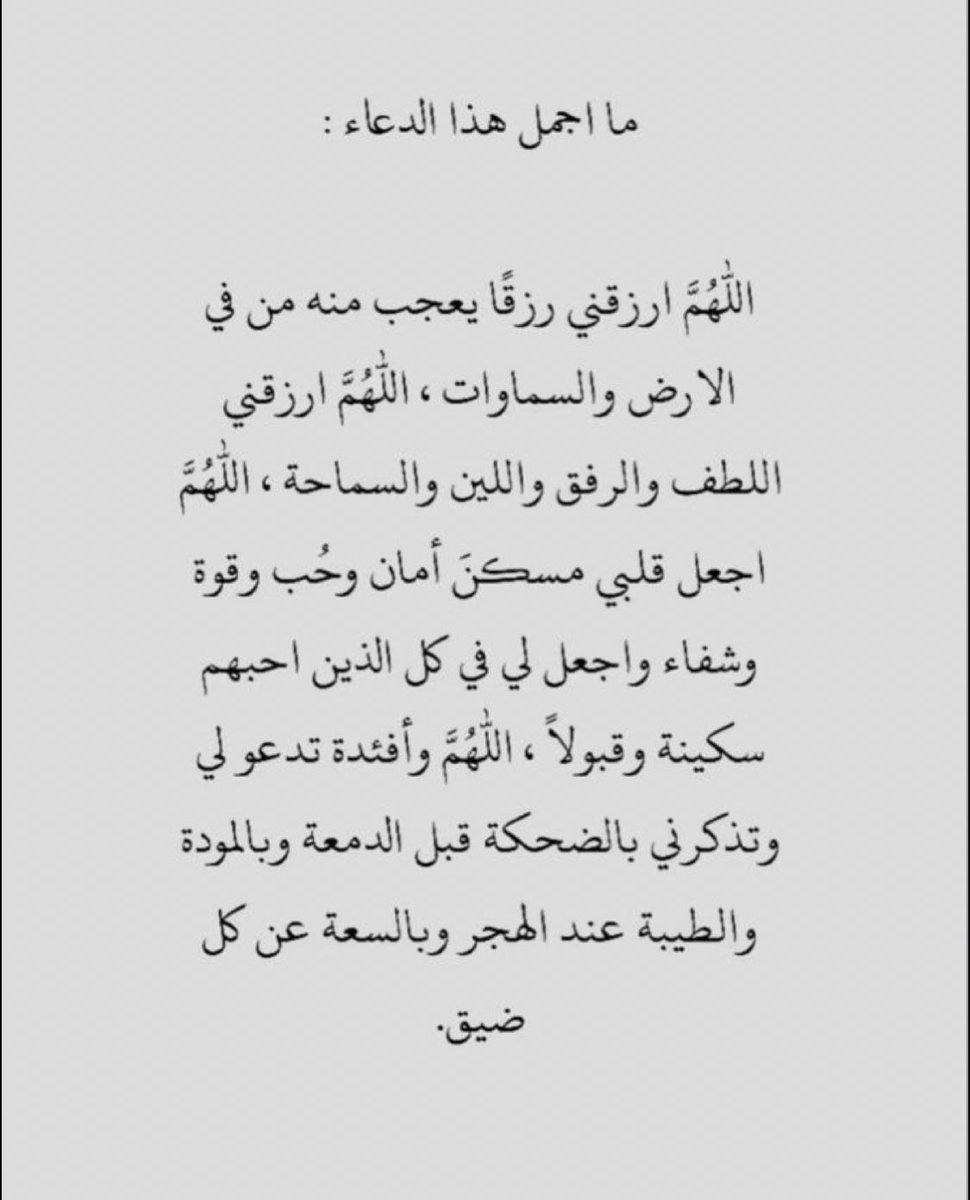 ما اجمل هذا الدعاء :
اللّٰهُمَّ ارزقني رزقًا يعجب منه من في
الارض والسماوات ، اللّٰهُمَّ ارزقني
اللطف والرفق واللين والسماحة ، اللّٰهُمَّ
اجعل قلبي مسكنَ أمان وحُب وقوة
وشفاء واجعل لي في كل الذين احبهم
سكينة وقبولاً ، اللّٰهُمَّ وأفئدة تدعو لي
وتذكرني بالضحكة قبل الدمعة وبالمودة
والطيبة عند الهجر وبالسعة عن كل
ضيق.